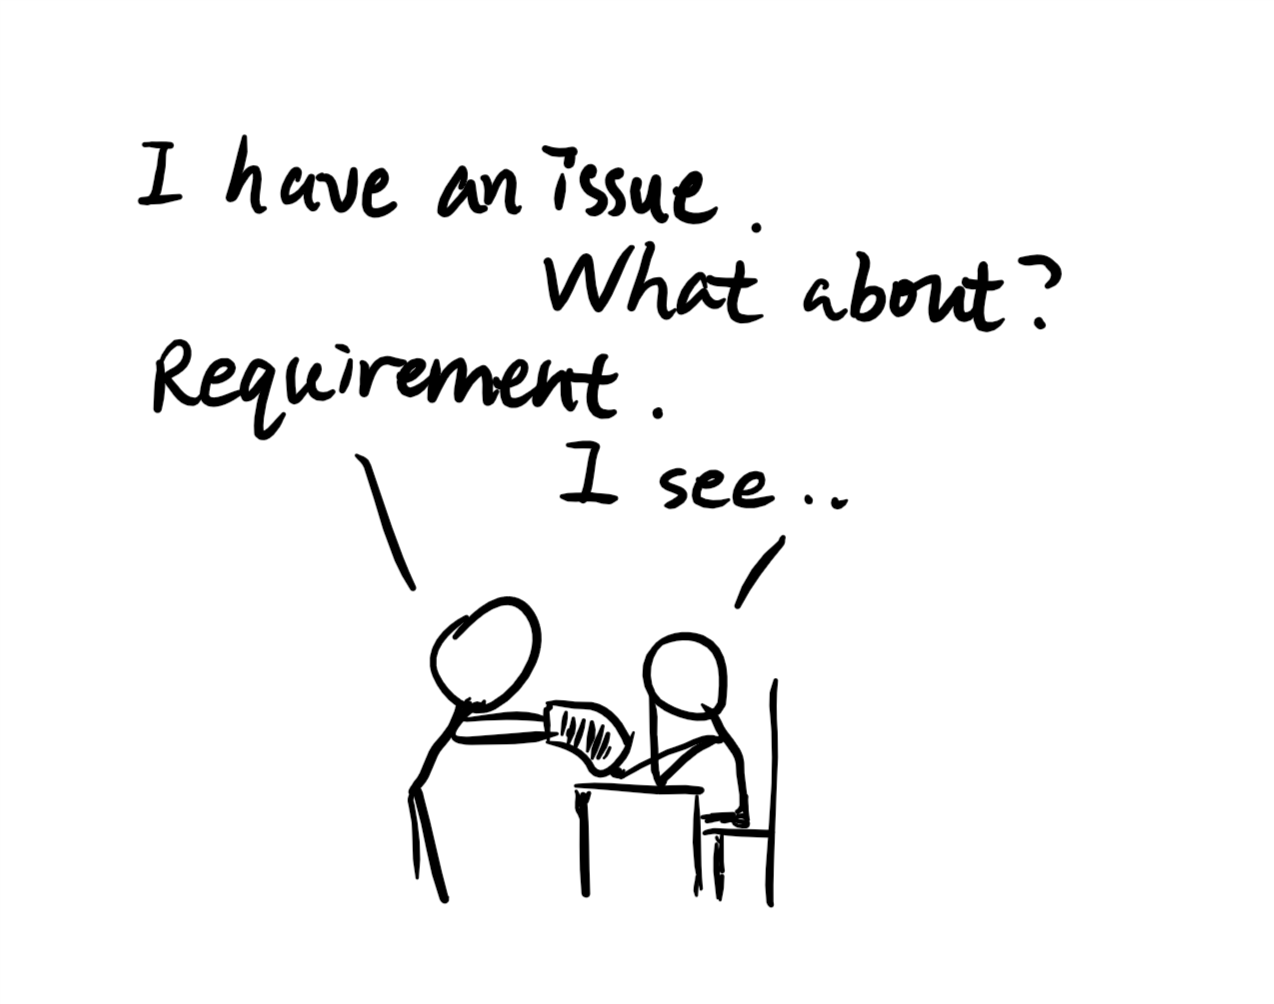 I have an issue.
What about?
Requirement.
I see..